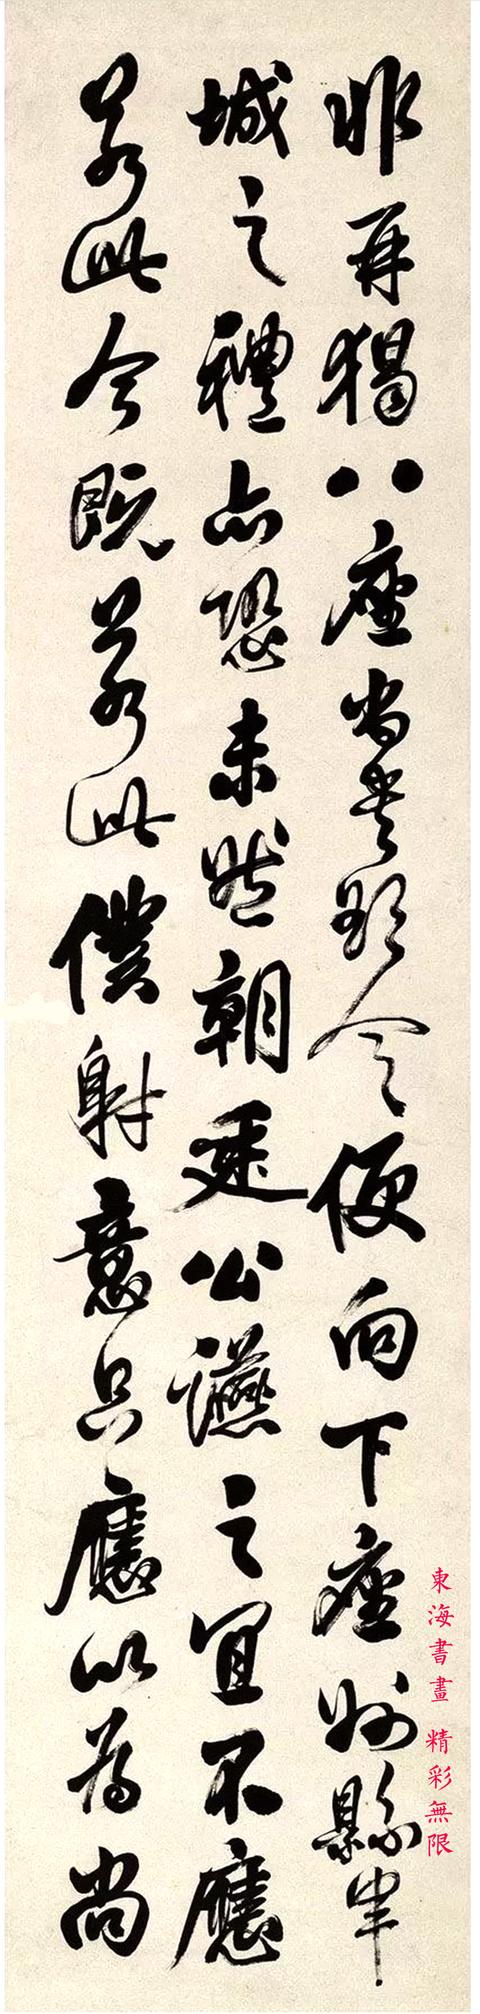 非再猲八座尚書欲令便向下座州縣軍
城之禮亦恐未然朝廷公讌之宜不應
若此今既若此僕射意只應以為尚
東海書畫 精彩無限